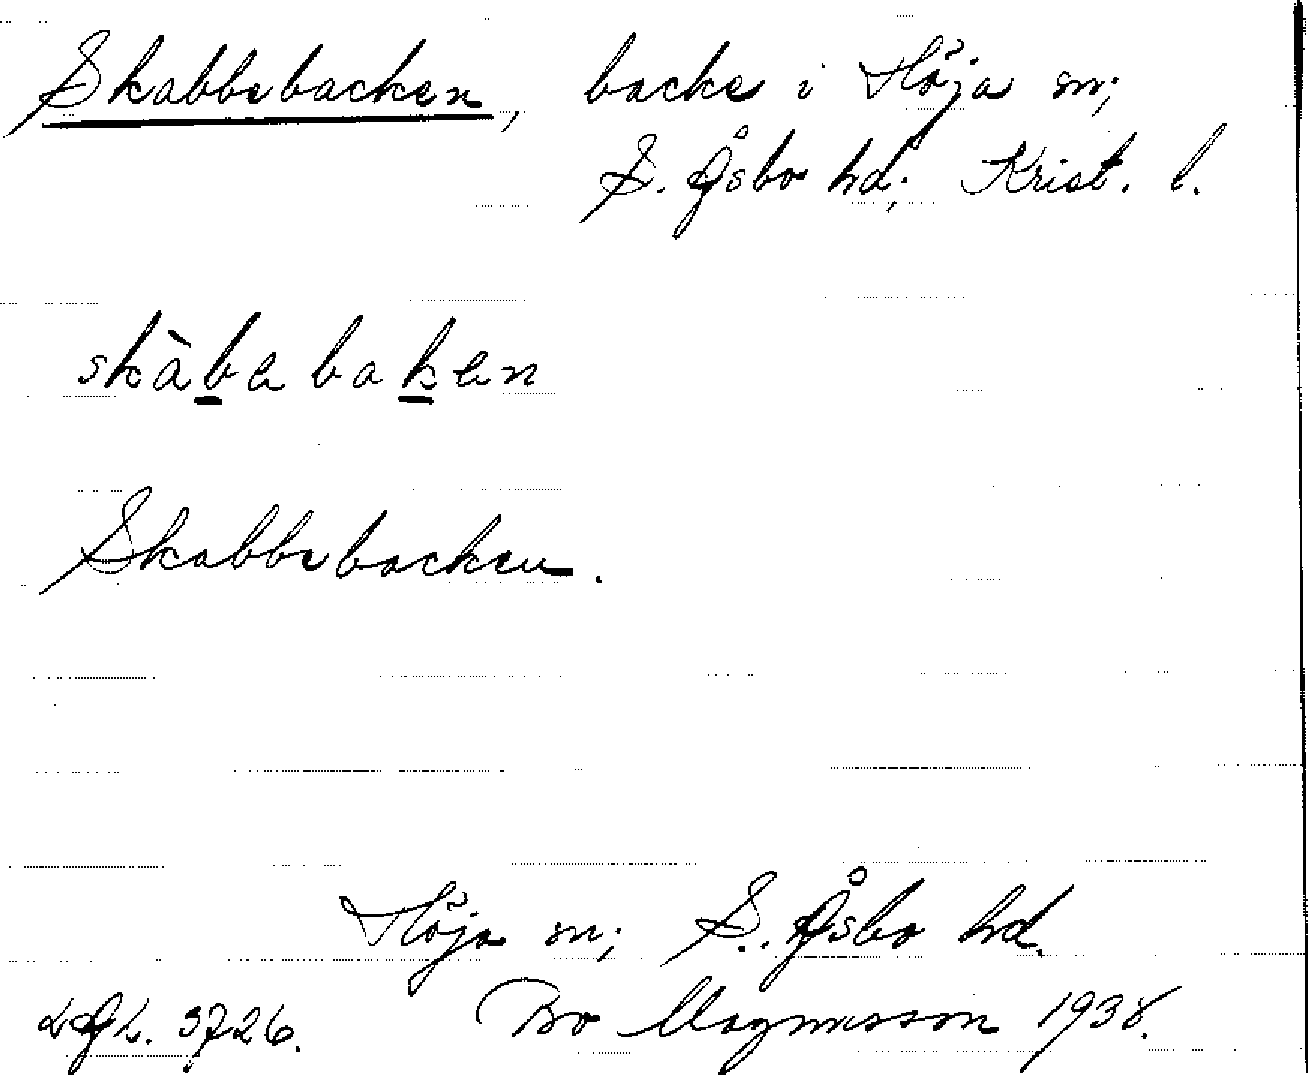 Skabbebacken, backe i Höja sn;
S. Åsbo hd; Krist. l.
skàbebaken
Skabbebacken.
Höja sn; S. Åsbo hd.
LAL. 3726. Bo Magnusson 1938.